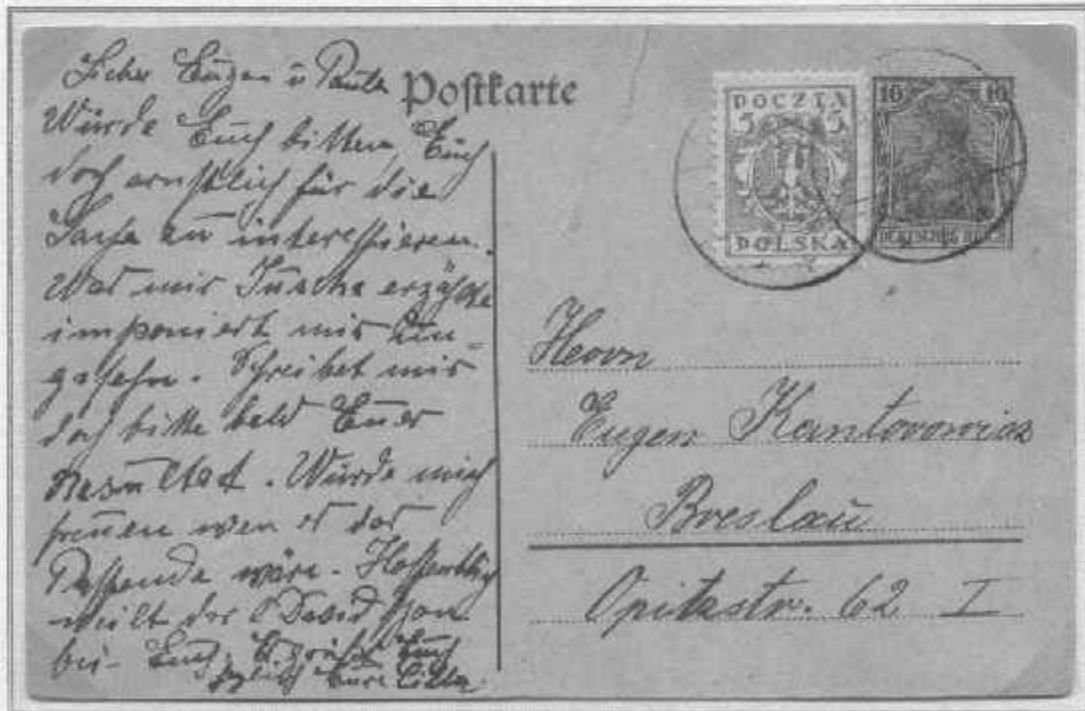 Postkarte
Lieber Eugen u Paula
Würde Euch bitten, Euch
doch ernstlich für die
Sache zu interessieren.
Was mir Tusche erzählte
imponiert mir un-
gesehn. Schreibet mir
doch bitte bald Euer
Resultat. Würde mich
freuen wen es das
Passende wäre. Hoffentlich
weilt der David schon
bei Euch. Es grüßt Euch
herzlich Eure
POCZTA
5 5
POLSKA
10 10
DEUTSCHES REICH
Herrn
Eugen Kantorowicz
Breslau
Opitzstr. 62 I